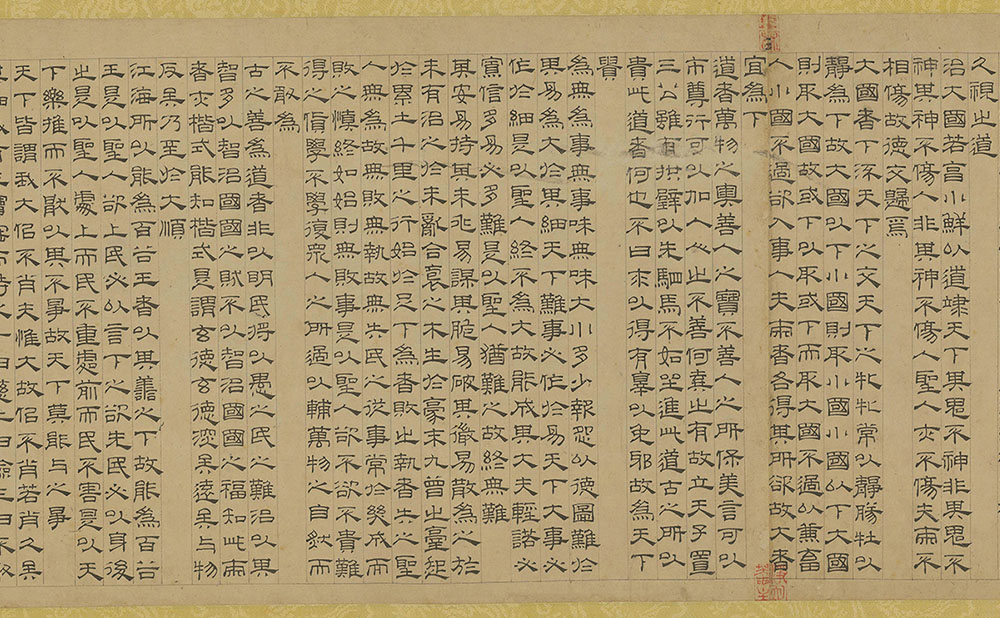 久視之道
治大國若亨小鮮以道竦天下其鬼不神非其鬼不
神其神不傷人非其神不傷人聖人亦不傷夫兩不
相傷故德交歸焉
大國者下流天下之交天下之牝牝常以靜勝牡以
靜為下故大國以下小國則取小國小國以下大國
則取大國故或下以取或下而取大國不過欲兼畜
人小國不過欲入事人夫兩者各得其所欲故大者
宜為下
道者萬物之奧善人之寶不善人之所保美言可以
市尊行可以加人人之不善何棄之有故立天子置
三公雖有拱璧以先駟馬不如坐進此道古之所以
貴此道者何也不曰求以得有辠以免邪故為天下
貴
為無為事無事味無味大小多少報怨以德圖難於
其易為大於其細天下難事必作於易天下大事必
作於細是以聖人終不為大故能成其大夫輕諾必
寡信多易必多難是以聖人猶難之故終無難
其安易持其未兆易謀其脆易破其微易散為之於
未有治之於未亂合裒之木生於豪末九曾之臺起
於累土千里之行始於足下為者敗之執者失之聖
人無為故無敗無執故無失民之從事常於幾成而
敗之慎終如始則無敗事是以聖人欲不欲不貴難
得之貨學不學復眾人之所過以輔萬物之自然而
不敢為
古之善為道者非以明民將以愚之民之難治以其
智多以智治國國之賊不以智治國國之福知此兩
者亦楷式能知楷式是謂玄德玄德深矣遠矣與物
反矣乃至於大順
江海所以能為百谷王者以其善之下故能為百谷
王是以聖人欲上民必以言下之欲先民必以身後
之是以聖人處上而民不重處前而民不害是以天
下樂推而不猒以其不爭故天下莫能與之爭
天下皆謂我大佀不肖夫惟大故佀不肖若肖久矣